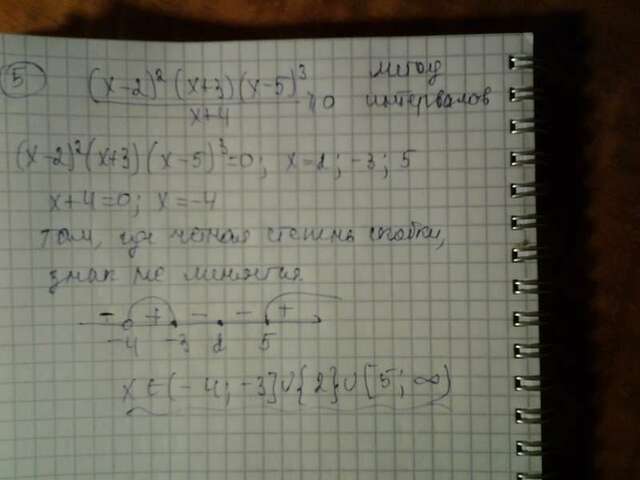 5 (x-2)² (x+3) (x-5)³ / x+4 ≥ 0 метод интервалов
(x-2)² (x+3) (x-5)³ = 0; x = 2; -3; 5
x+4=0; x = -4
там, где чётная степень скобки,
знак не меняется
- + - - +
-4 -3 2 5
x ∈ (-4; -3] ∪ {2} ∪ [5; ∞)